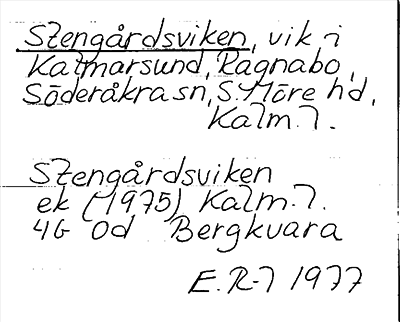 Stengårdsviken, vik i
Kalmarsund, Ragnabo,
Söderåkra sn, S. Möre hd,
Kalm. l.
Stengårdsviken
ek (1975) Kalm. l.
4G 0d Bergkvara
E. R-l 1977